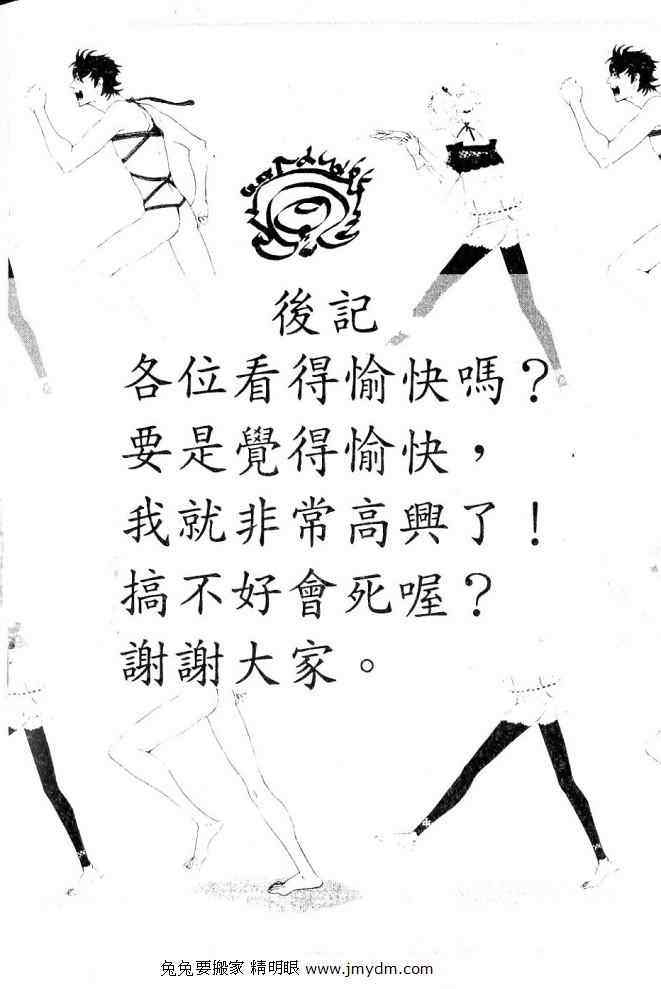 後記
各位看得愉快嗎？
要是覺得愉快，
我就非常高興了！
搞不好會死喔？
謝謝大家。
兔兔要搬家 精明眼 www.jmydm.com